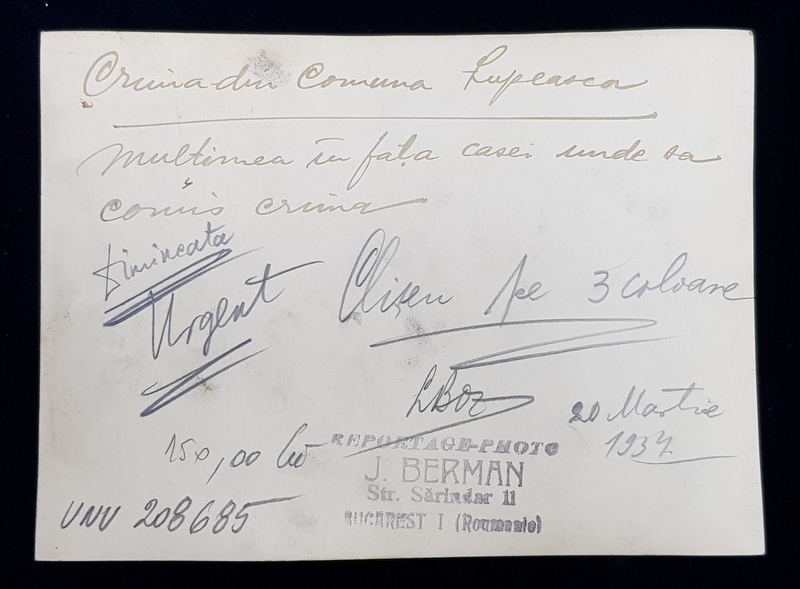 Crima din Comuna Lupeasca
Multimea în fața casei unde sa
comis crima
Dimineata
Urgent
Clișeu pe 3 coloane
20 Martie
1937
150,00 lei
REPORTAGE-PHOTO
J. BERMAN
Str. Sărindar 11
BUCAREST I (Roumanie)
UNU 208685